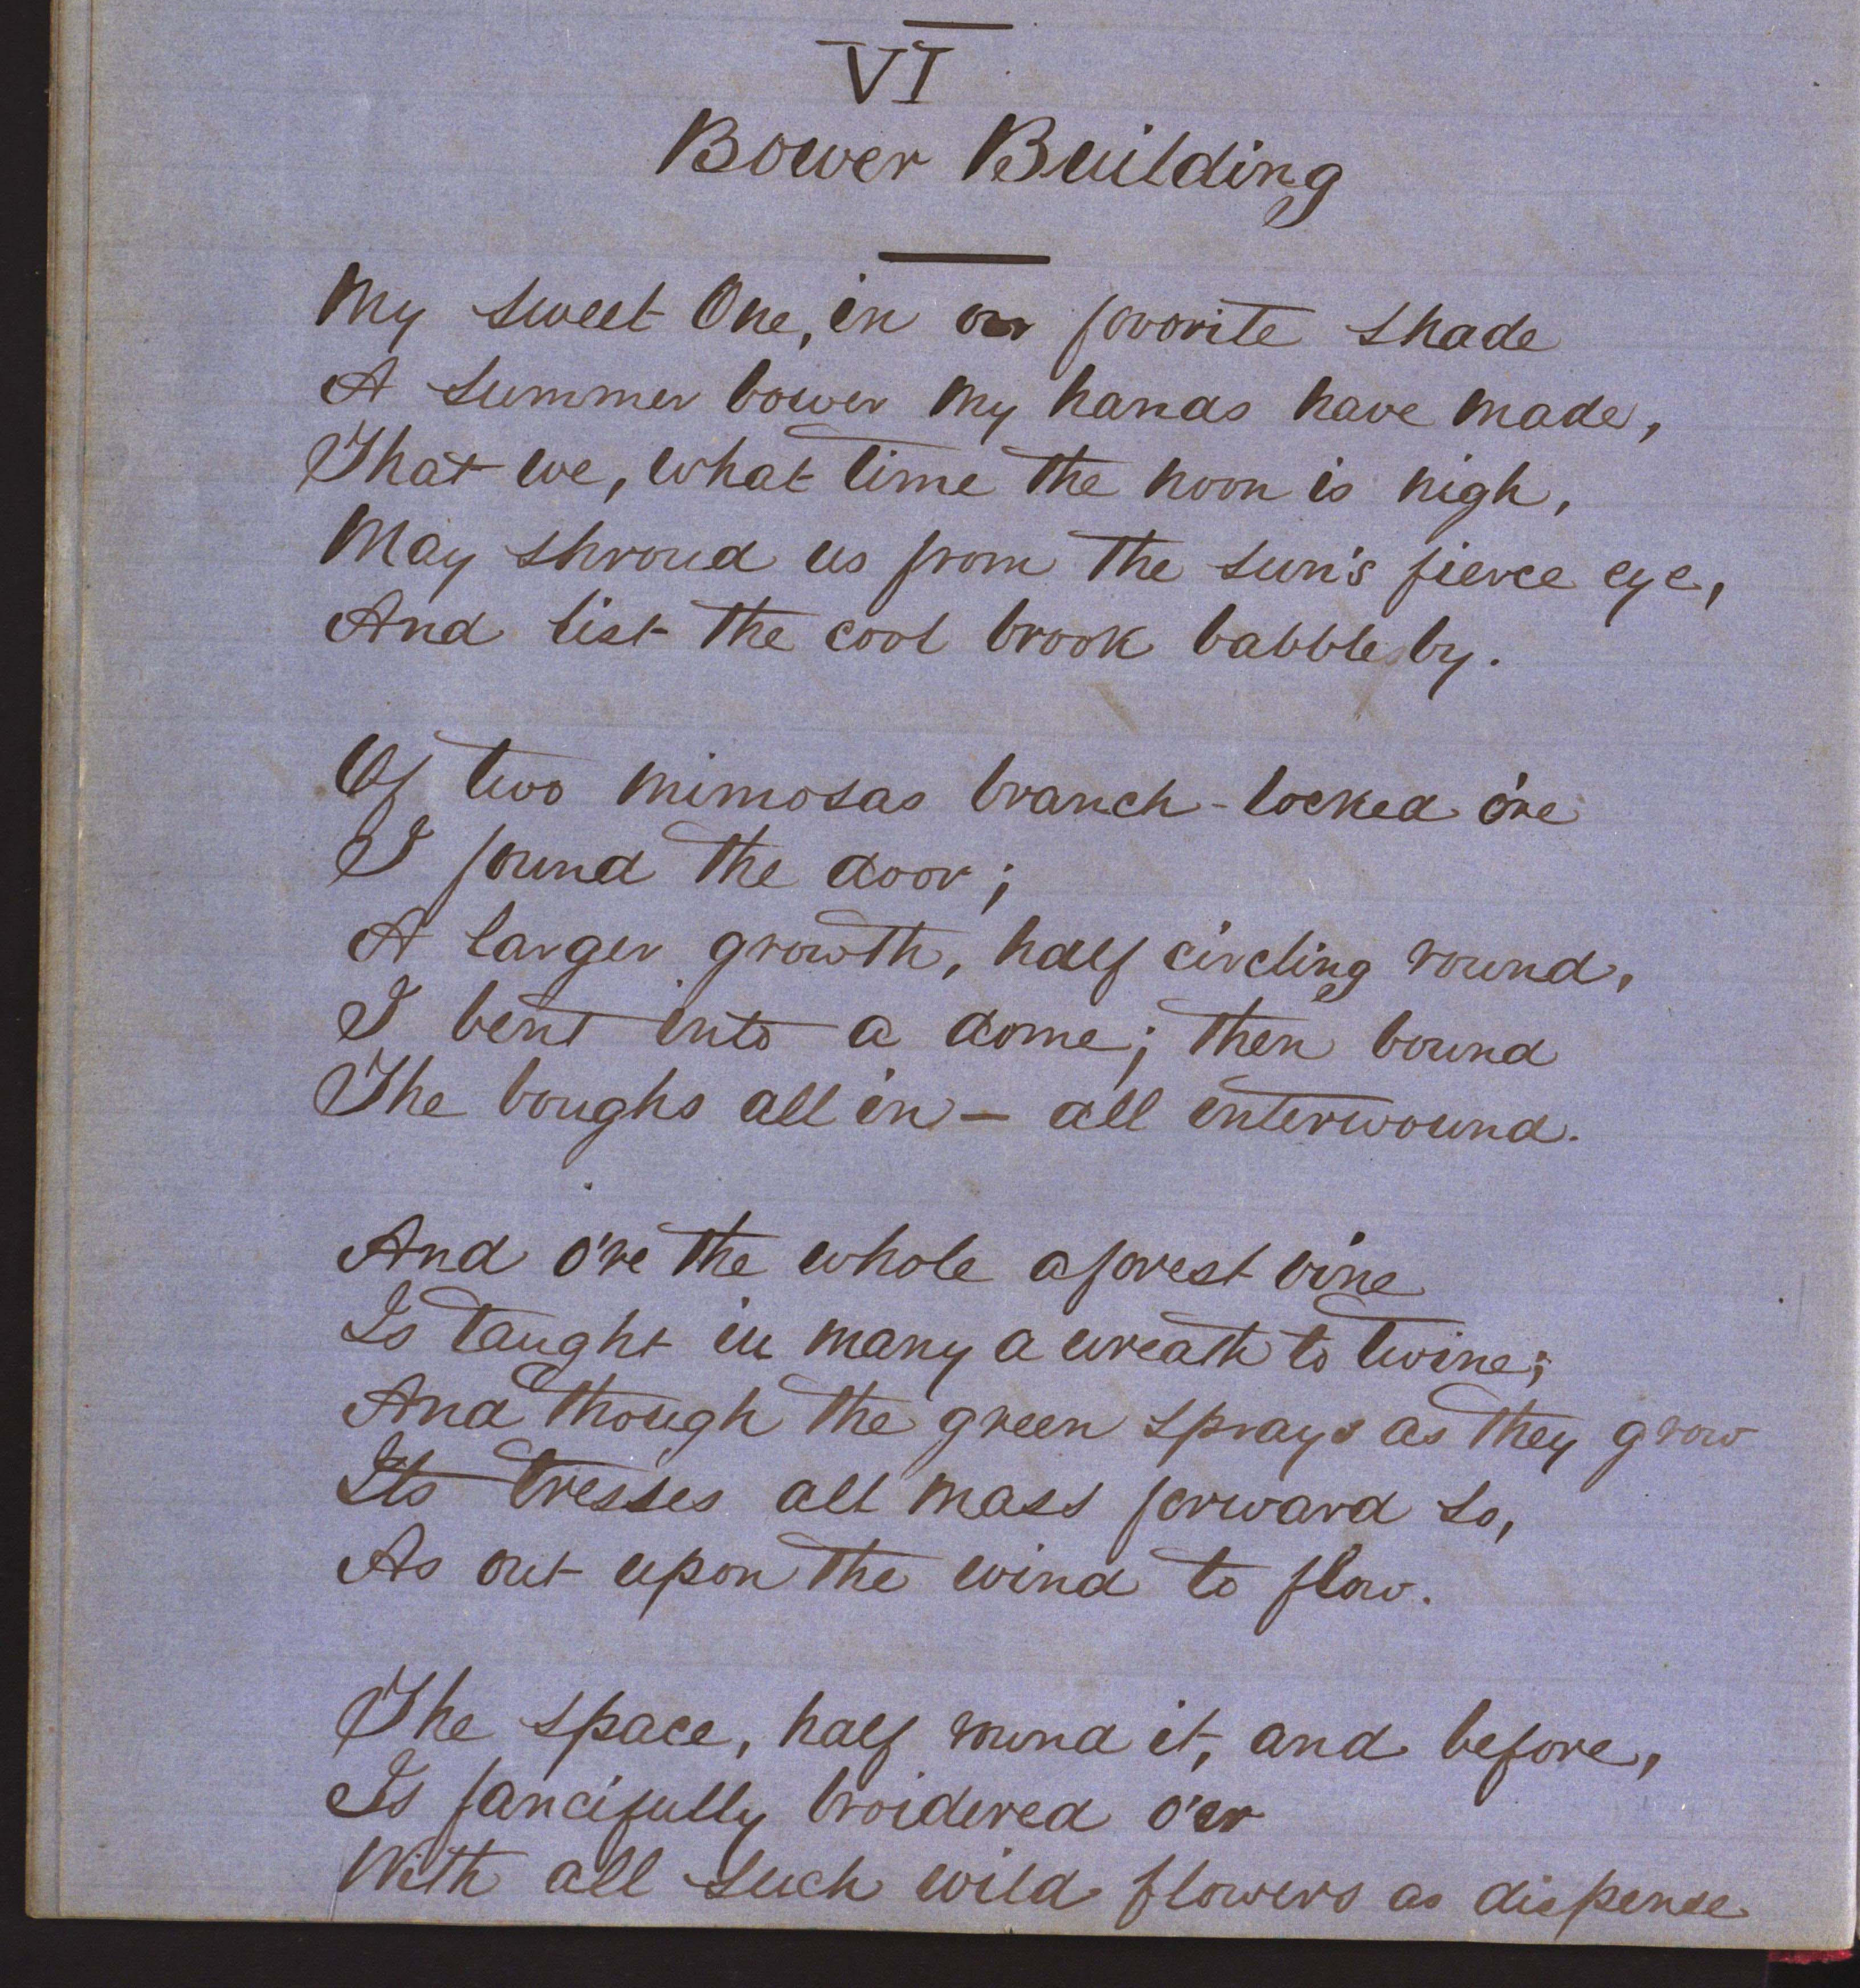 VI
Bower Building
My sweet One, in our favorite shade
A summer bower my hands have made,
That we, what time the noon is high,
May shroud us from the sun's fierce eye,
And list the cool brook babble by.
Of two mimosas branch-locked o're
I found the door;
A larger growth, half circling round,
I bent into a dome; then bound
The boughs all in — all interwound.
And o're the whole a forest vine
Is taught in many a wreath to twine;
And though the green sprays as they grow
Its tresses all mass forward so,
As out upon the wind to flow.
The space, half round it, and before,
Is fancifully broidered o'er
With all such wild flowers as dispense